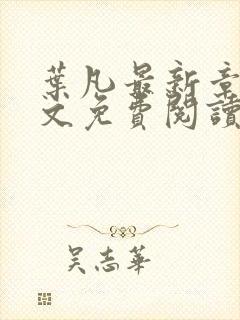 葉凡最新章
文免費閱讀
吴志華